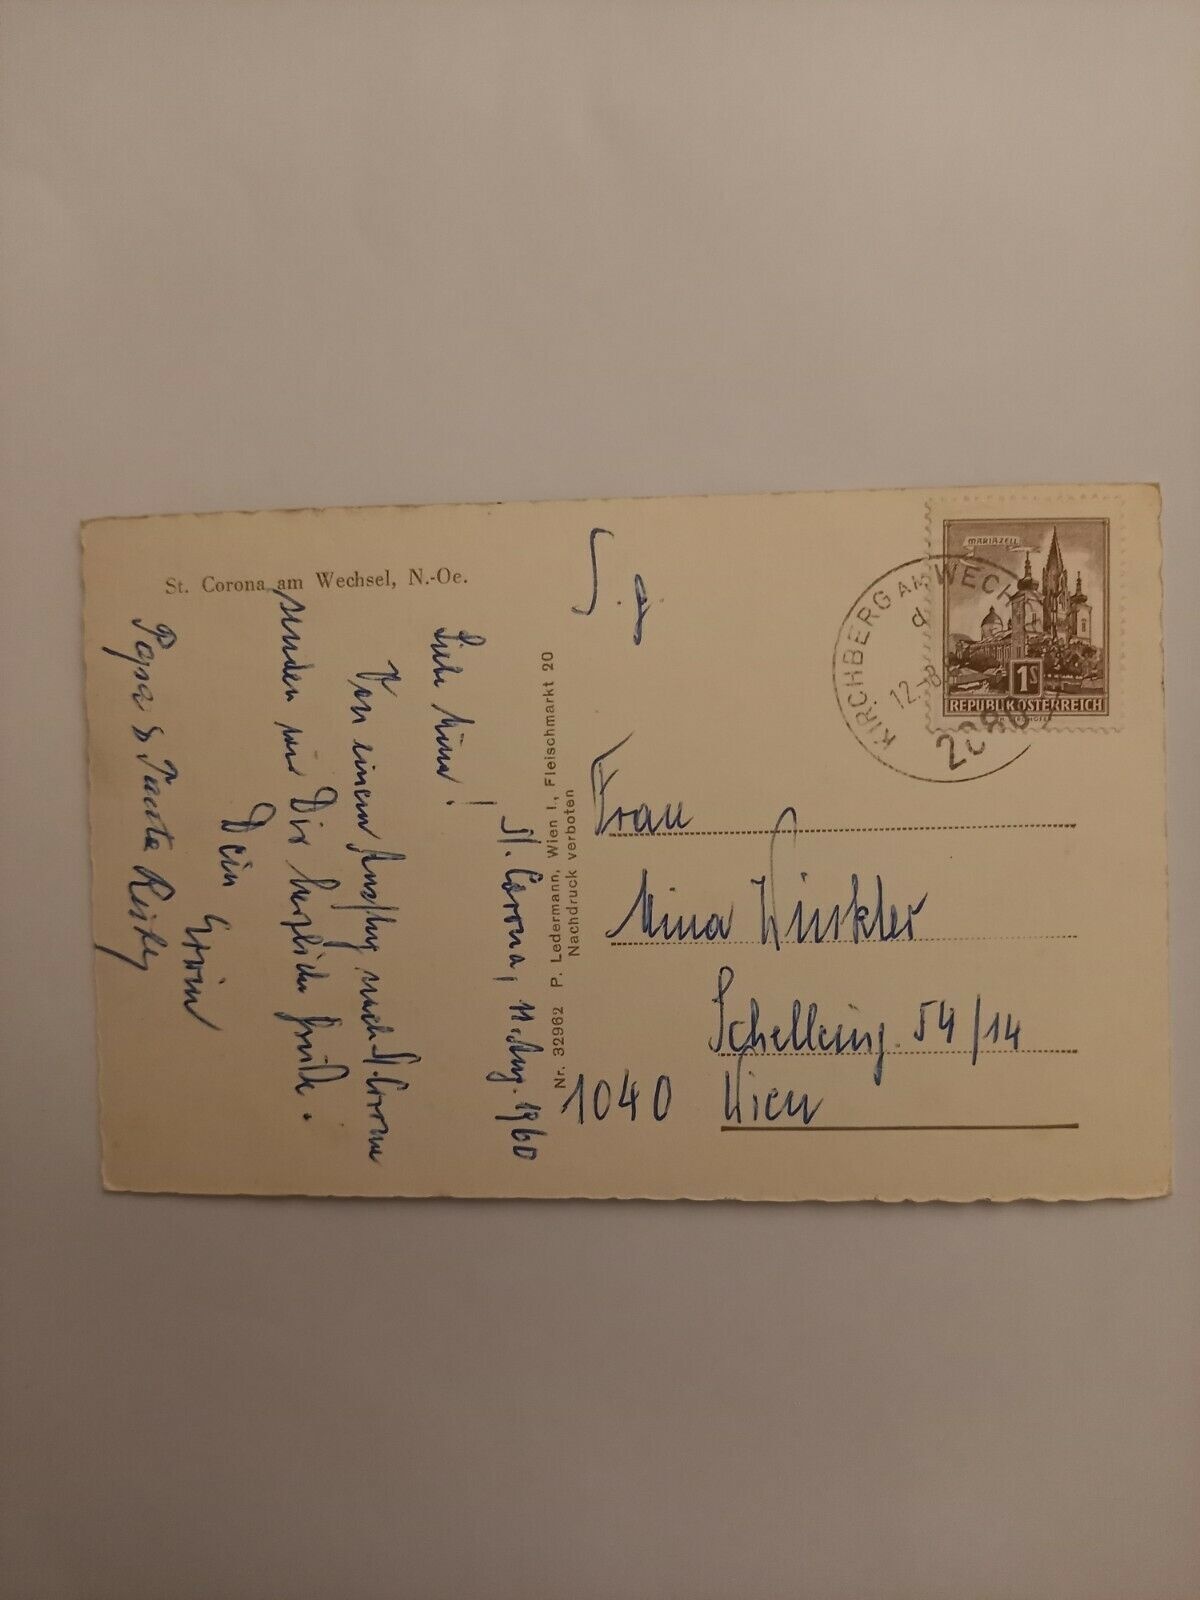 St. Corona am Wechsel, N.-Oe.
St. Corona, 11. Aug. 1960
Liebe Mina!
Von einem Ausflug nach St. Corona
senden wir Dir herzliche Grüße.
Dein
Erwin
Papa & Tante
Nr. 32962 P. Ledermann, Wien I., Fleischmarkt 20
Nachdruck verboten
MARIAZELL
1S
REPUBLIK ÖSTERREICH
KIRCHBERG AM WECH
12.-8
Frau
Mina Winkler
Schelleing. 54/14
1040 Wien